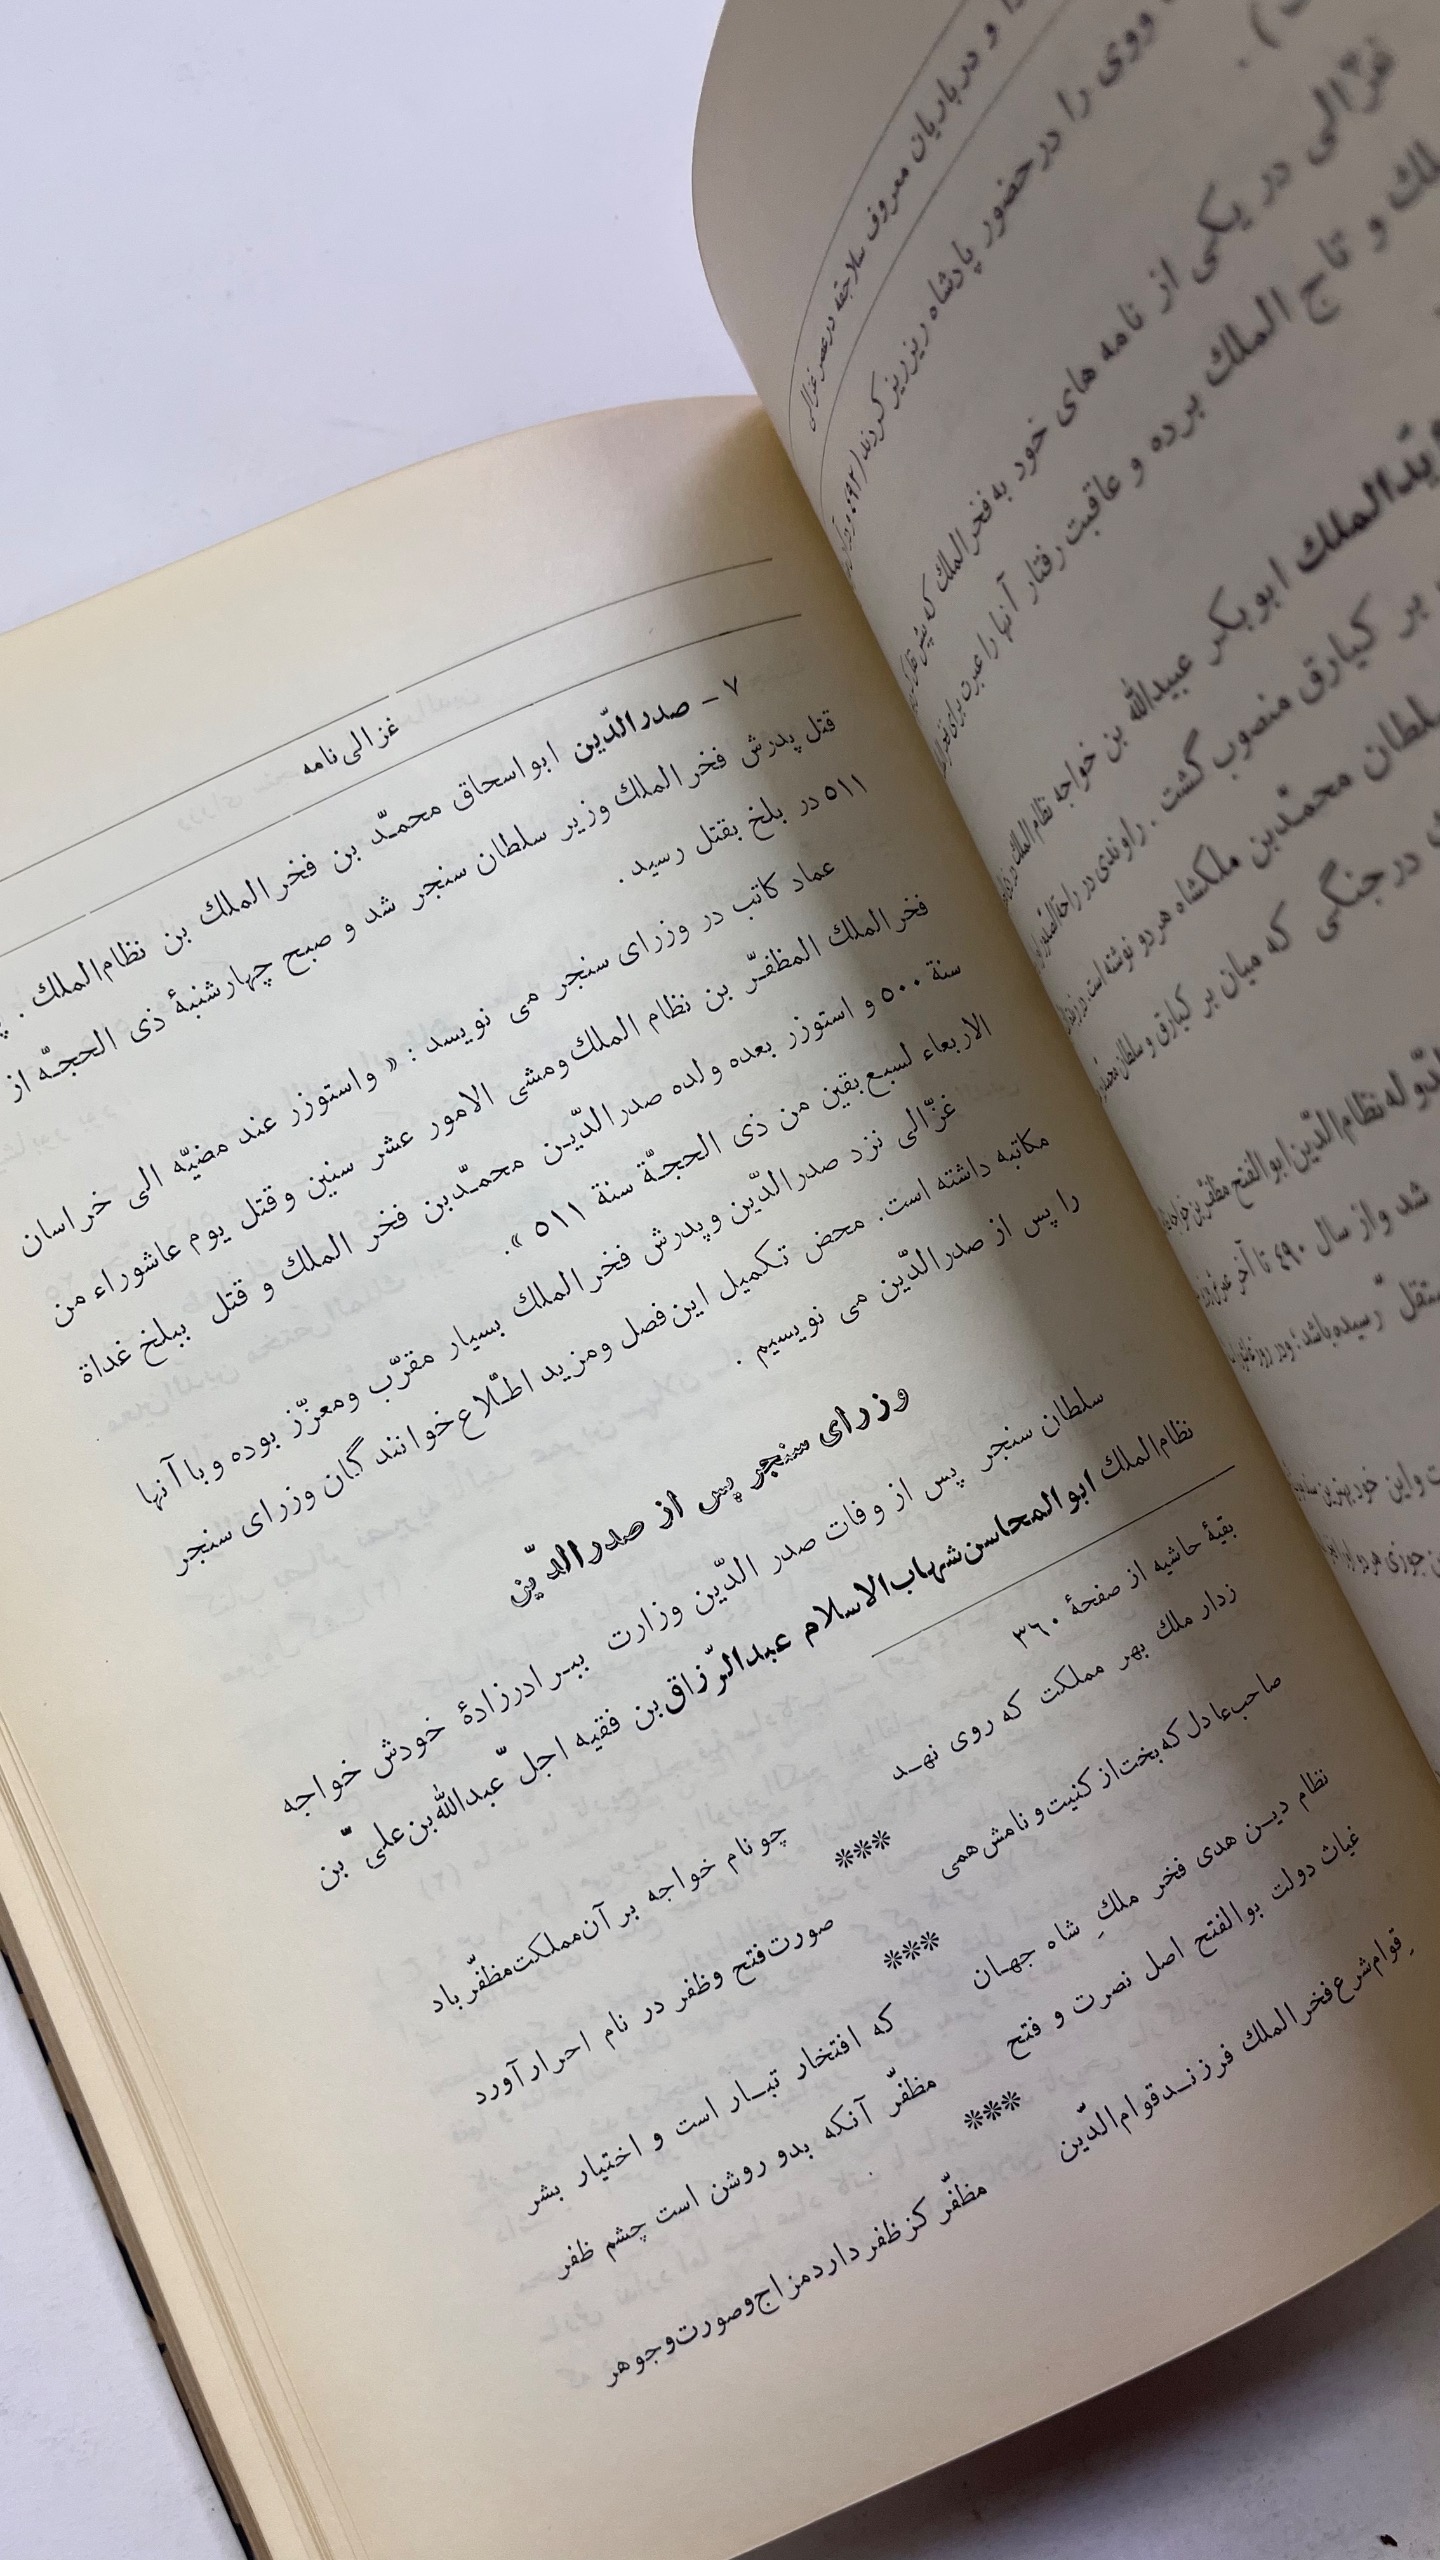 و درباریان معروف سلاجقه در عصر غزالی
ووی را در حضور پادشاه ریز ریز کردند
غزالی در یکی از نامه های خود به فخر الملك که
و تاج الملك برده و عاقبت رفتار آنها را عبرت برای
ابوبکر عبیدالله بن خواجه نظام الملك
بر کیارق منصوب گشت . راوندی در راحة الصدور
سلطان محمّد بن ملکشاه هر دو نوشته است
در جنگی که میان بر کیارق و سلطان محمد
نظام الدّین ابوالفتح مظفّر بن خواجه
شد و از سال ۴۹۰ تا آخر
رسیده باشد؛ ودر روز
و این خود بهترین
غزالی نامه
۷ – صدرالدّین ابواسحاق محمّد بن فخرالملك بن نظام الملك .
قتل پدرش فخرالملك وزیر سلطان سنجر شد و صبح چهارشنبهٔ ذی الحجّه از
۵۱۱ در بلخ بقتل رسید .
عماد کاتب در وزرای سنجر می نویسد : « واستوزر عند مضیّه الی خراسان
فخرالملك المظفّر بن نظام الملك ومشی الامور عشر سنین وقتل یوم عاشوراء من
سنة ۵۰۰ و استوزر بعده ولده صدرالدّین محمّدبن فخر الملك و قتل ببلخ غداة
الاربعاء لسبع بقین من ذی الحجّة سنة ۵۱۱ ».
غزّالی نزد صدرالدّین و پدرش فخرالملك بسیار مقرّب ومعزّز بوده و با آنها
مکاتبه داشته است. محض تکمیل این فصل ومزید اطّلاع خوانندگان وزرای سنجر
را پس از صدرالدّین می نویسیم .
وزرای سنجر پس از صدرالدّین
سلطان سنجر پس از وفات صدر الدّین وزارت ببرادرزادهٔ خودش خواجه
نظام الملك ابوالمحاسن شهاب الاسلام عبدالرّزاق بن فقیه اجلّ عبدالله بن علیّ بن
بقیهٔ حاشیه از صفحهٔ ۳۶۰
زدار ملك بهر مملکت که روی نهد
چو نام خواجه بر آن مملکت مظفّر باد
***
صاحب عادل که بخت از کنیت و نامش همی
صورت فتح وظفر در نام احرار آورد
***
نظام دین هدی فخر ملكِ شاه جهان
که افتخار تبار است و اختیار بشر
غیاث دولت بوالفتح اصل نصرت و فتح
مظفّر آنکه بدو روشن است چشم ظفر
***
قوام شرع فخرالملك فرزند قوام الدّین
مظفّر کز ظفر دارد مزاج و صورت و جوهر